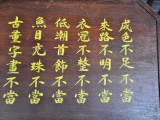 成色不足不當
來路不明不當
衣冠不整不當
低潮首飾不當
魚目充珠不當
古董字畫不當